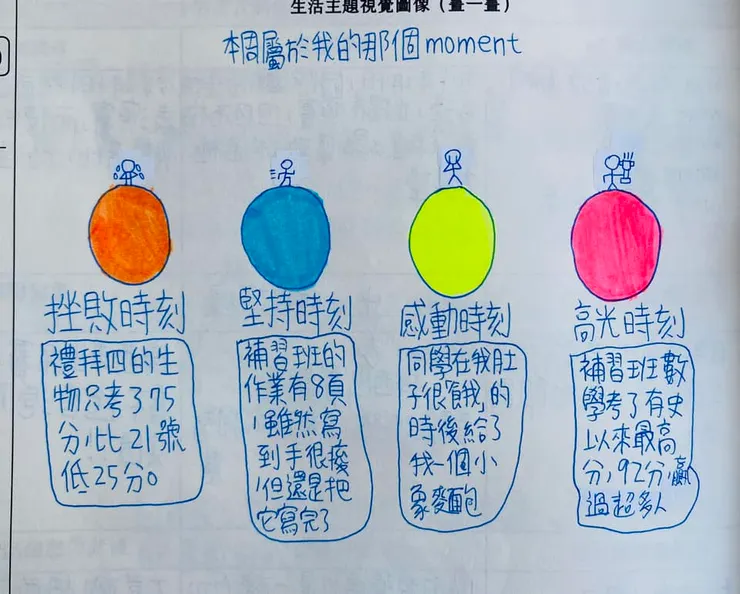 生活主題視覺圖像（畫一畫）
本周屬於我的那個moment
挫敗時刻
禮拜四的生
物只考了75
分,比21號
低25分。
堅持時刻
補習班的
作業有8頁
,雖然寫
到手很痠
,但還是把
它寫完了
感動時刻
同學在我肚
子很「餓」的
時後給了
我一個小
象麵包
高光時刻
補習班數
學考了有史
以來最高
分,92分,贏
過超多人